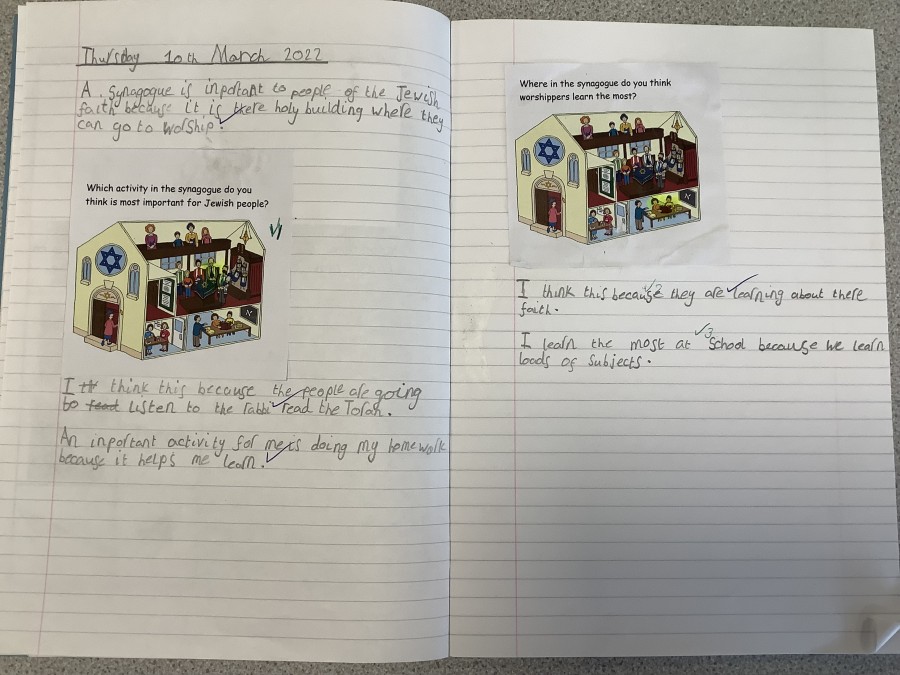 Thursday 10th March 2022
A synagogue is inportant to people of the Jewish
faith because it is there holy building where they
can go to worship.
Which activity in the synagogue do you
think is most important for Jewish people?
I th think this because the people are going
to read listen to the rabbi read the Torah.
An inportant activity for me is doing my homework
because it helps me learn.
Where in the synagogue do you think
worshippers learn the most?
I think this because they are learning about there
faith.
I learn the most at School because we learn
loads of Subjects.